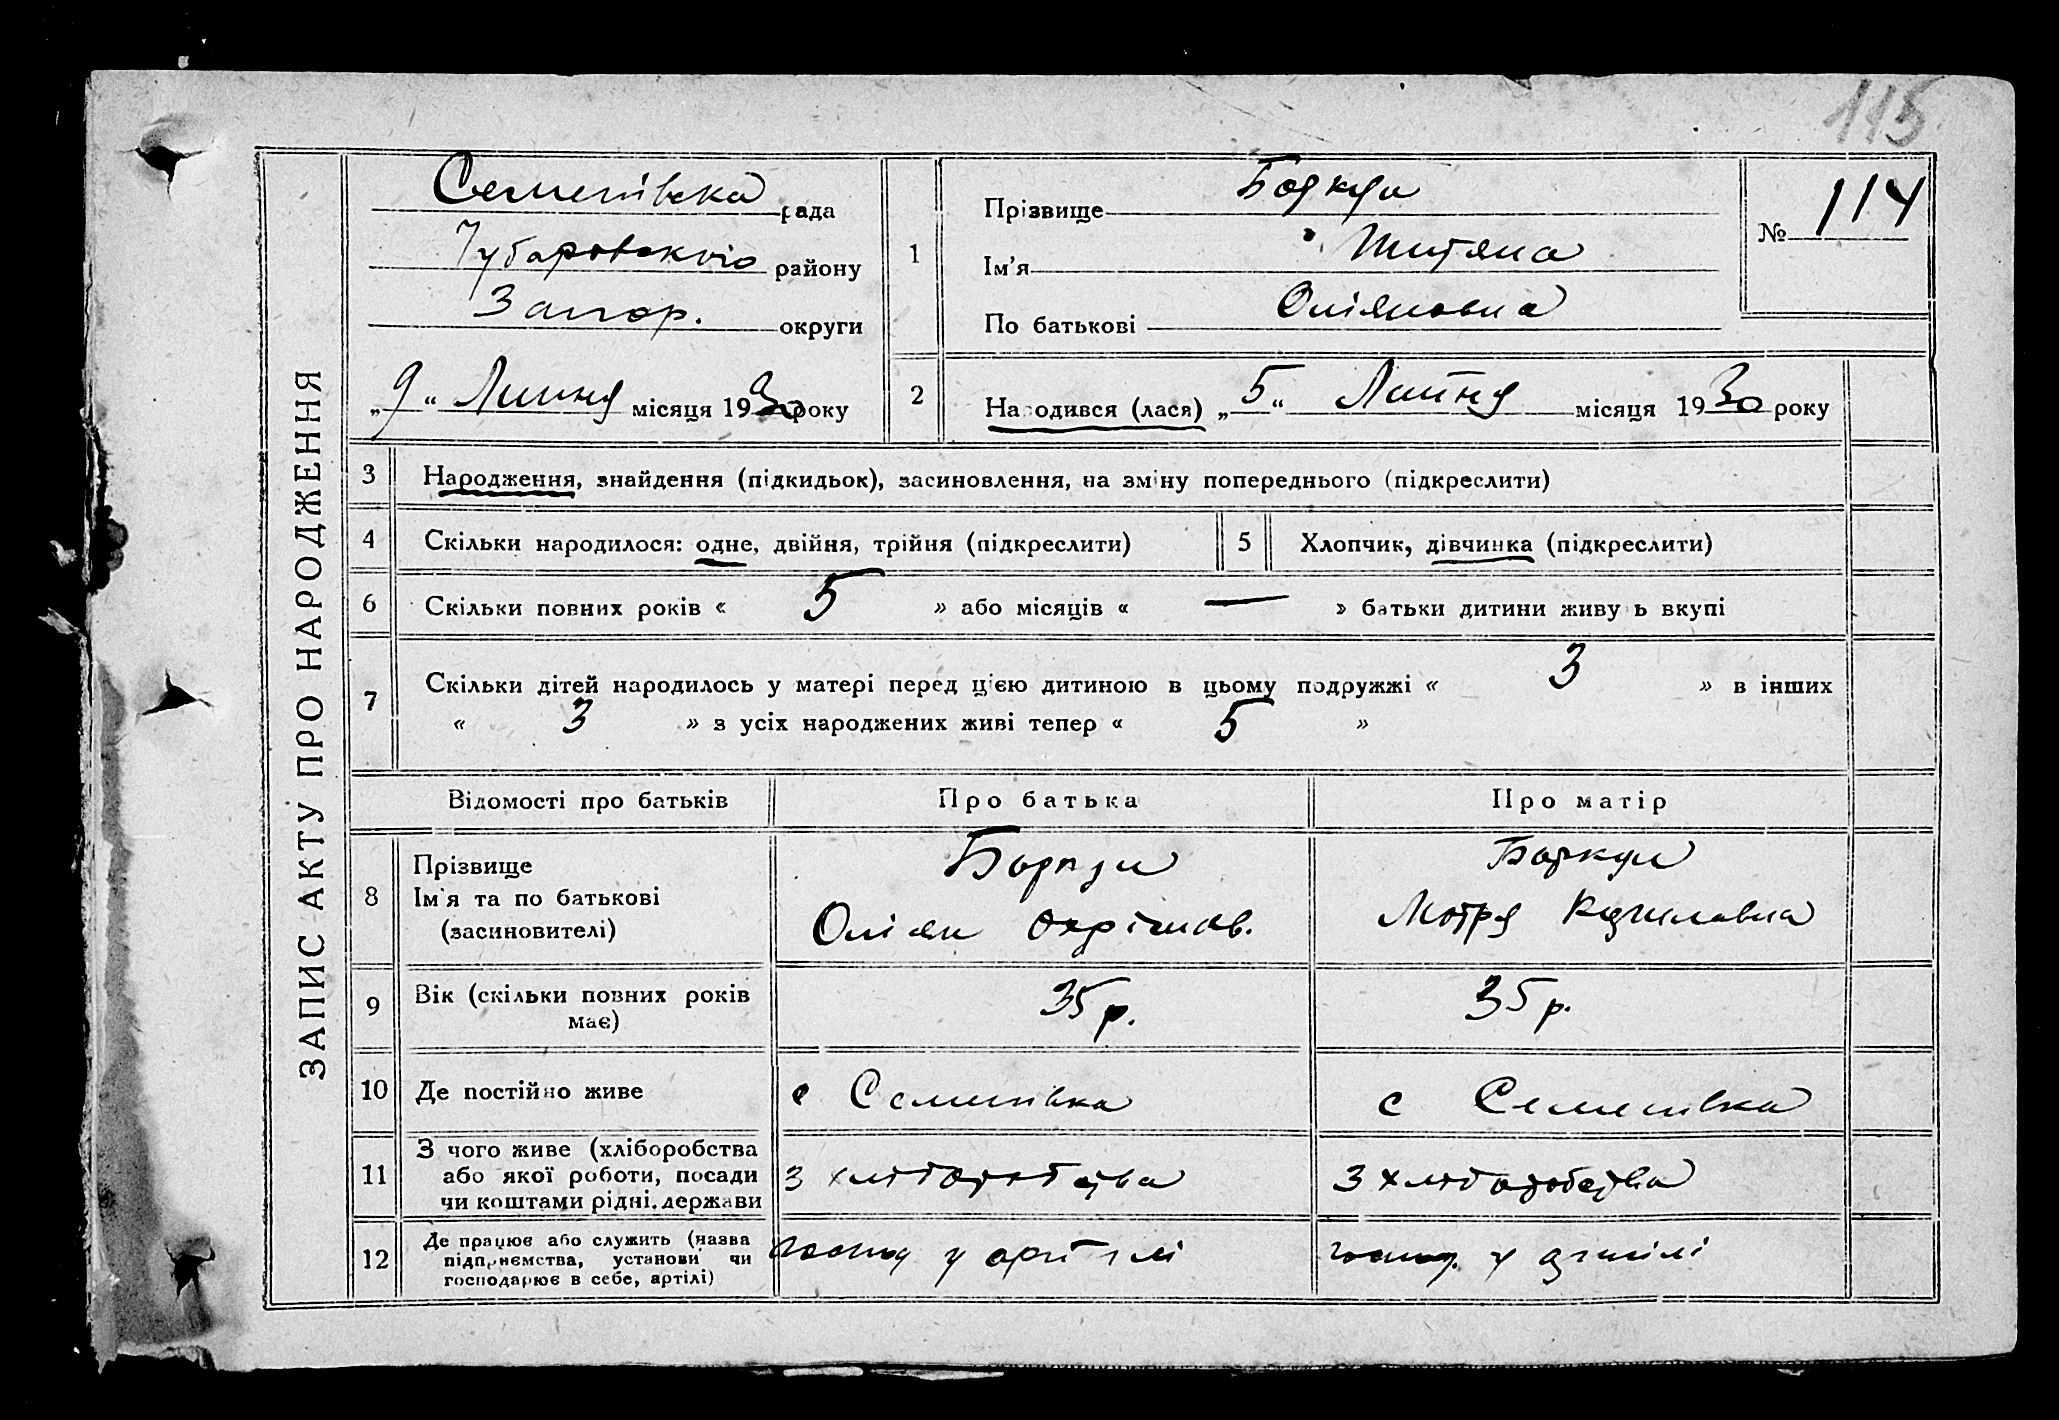 115
ЗАПИС АКТУ ПРО НАРОДЖЕННЯ
Семенівська рада
Чубаровського району
Запор. округи
„9“ Липня місяця 1930 року
1
Прізвище
Ім’я
По батькові
№ 114
2 Народився (лася) „5“ Липня місяця 1930 року
3 Народження, знайдення (підкидьок), засиновлення, на зміну попереднього (підкреслити)
4 Скільки народилося: одне, двійня, трійня (підкреслити) 5 Хлопчик, дівчинка (підкреслити)
6 Скільки повних років « 5 » або місяців « — » батьки дитини живуть вкупі
7 Скільки дітей народилось у матері перед цією дитиною в цьому подружжі « 3 » в інших
« 3 » з усіх народжених живі тепер « 5 »
Відомості про батьків Про батька Про матір
8 Прізвище
Ім'я та по батькові
(засиновителі)
Мотря
9 Вік (скільки повних років має) 35 р. 35 р.
10 Де постійно живе с Семенівка с Семенівка
11 З чого живе (хліборобства
або якої роботи, посади
чи коштами рідні, держави
З хліборобства З хліборобства
12 Де працює або служить (назва
підприємства, установи чи
господарює в себе, артілі)
у артілі у артілі